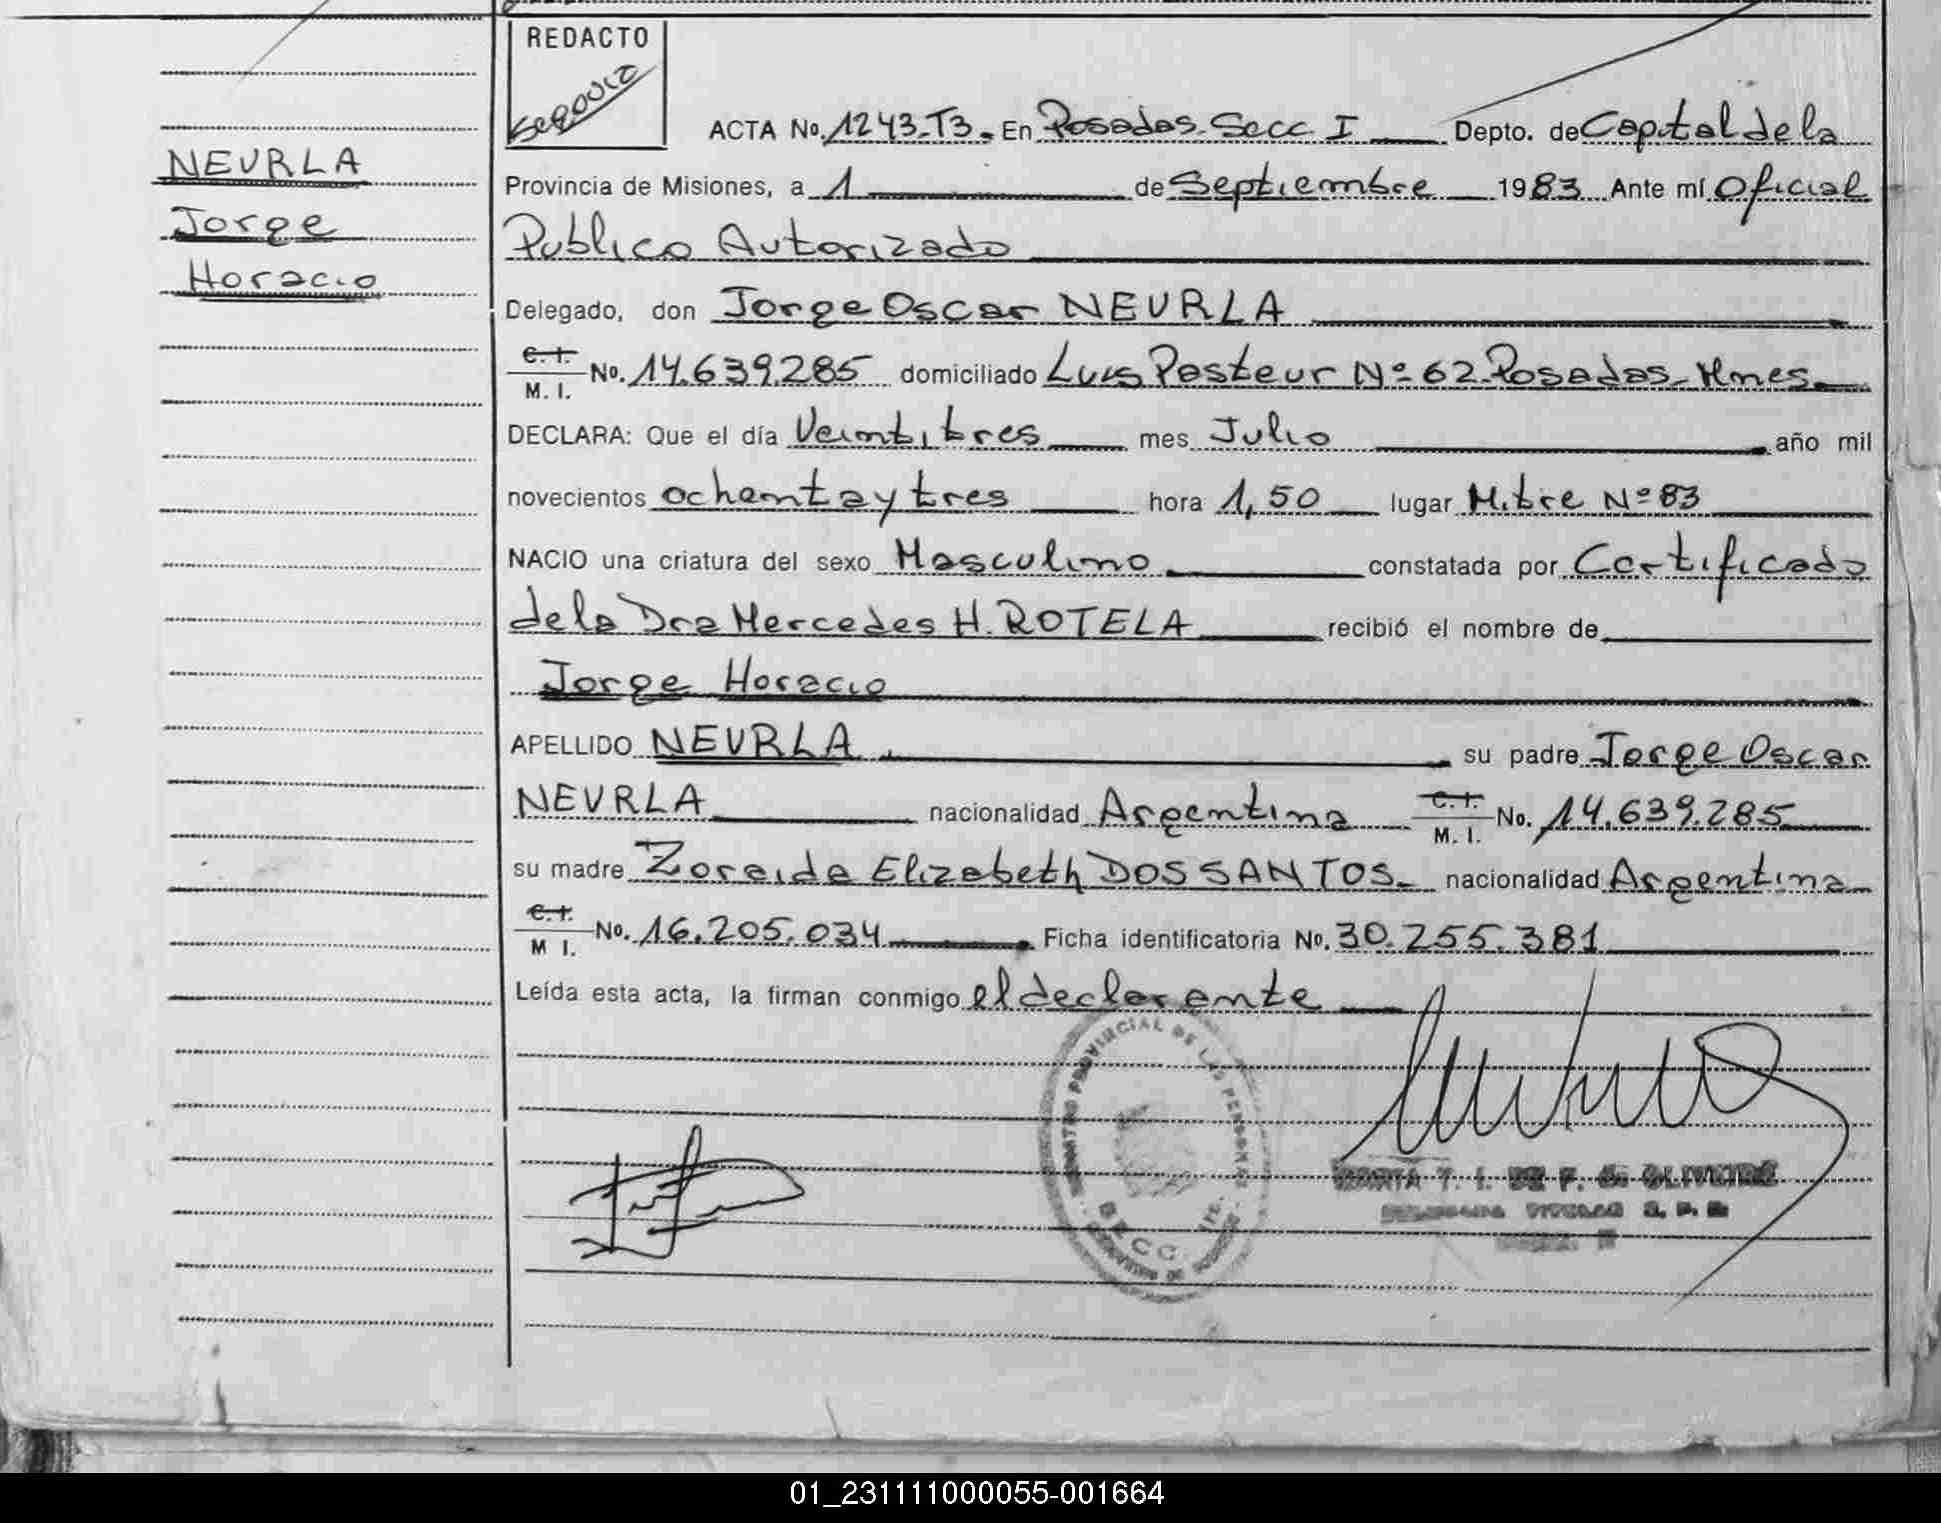 REDACTO
Segovia
ACTA No. 1243-T3. En Posadas-Secc I Depto. de Capital de la
NEVRLA
Jorge
Horacio
Provincia de Misiones, a 1 de Septiembre 1983 Ante mí Oficial
Publico Autorizado
Delegado, don Jorge Oscar NEVRLA
C. I.
M. I. No. 14.639.285 domiciliado Luis Pasteur Nº 62-Posadas-Mnes-
DECLARA: Que el día Veintitres mes Julio año mil
novecientos ochenta y tres hora 1,50 lugar Mitre Nº 83
NACIO una criatura del sexo Masculino constatada por Certificado
de la Dra Mercedes H. ROTELA recibió el nombre de
Jorge Horacio
APELLIDO NEVRLA su padre Jorge Oscar
NEVRLA nacionalidad Argentina C. I.
M. I. No. 14.639.285
su madre Zoraida Elizabeth DOS SANTOS- nacionalidad Argentina
C. I.
M I. No. 16.205.034 Ficha identificatoria No. 30.255.381
Leída esta acta, la firman conmigo el declarante
PROVINCIAL DE LAS PERSONAS
SECC.
T. I. DE F. OLIVEIRA
01_231111000055-001664